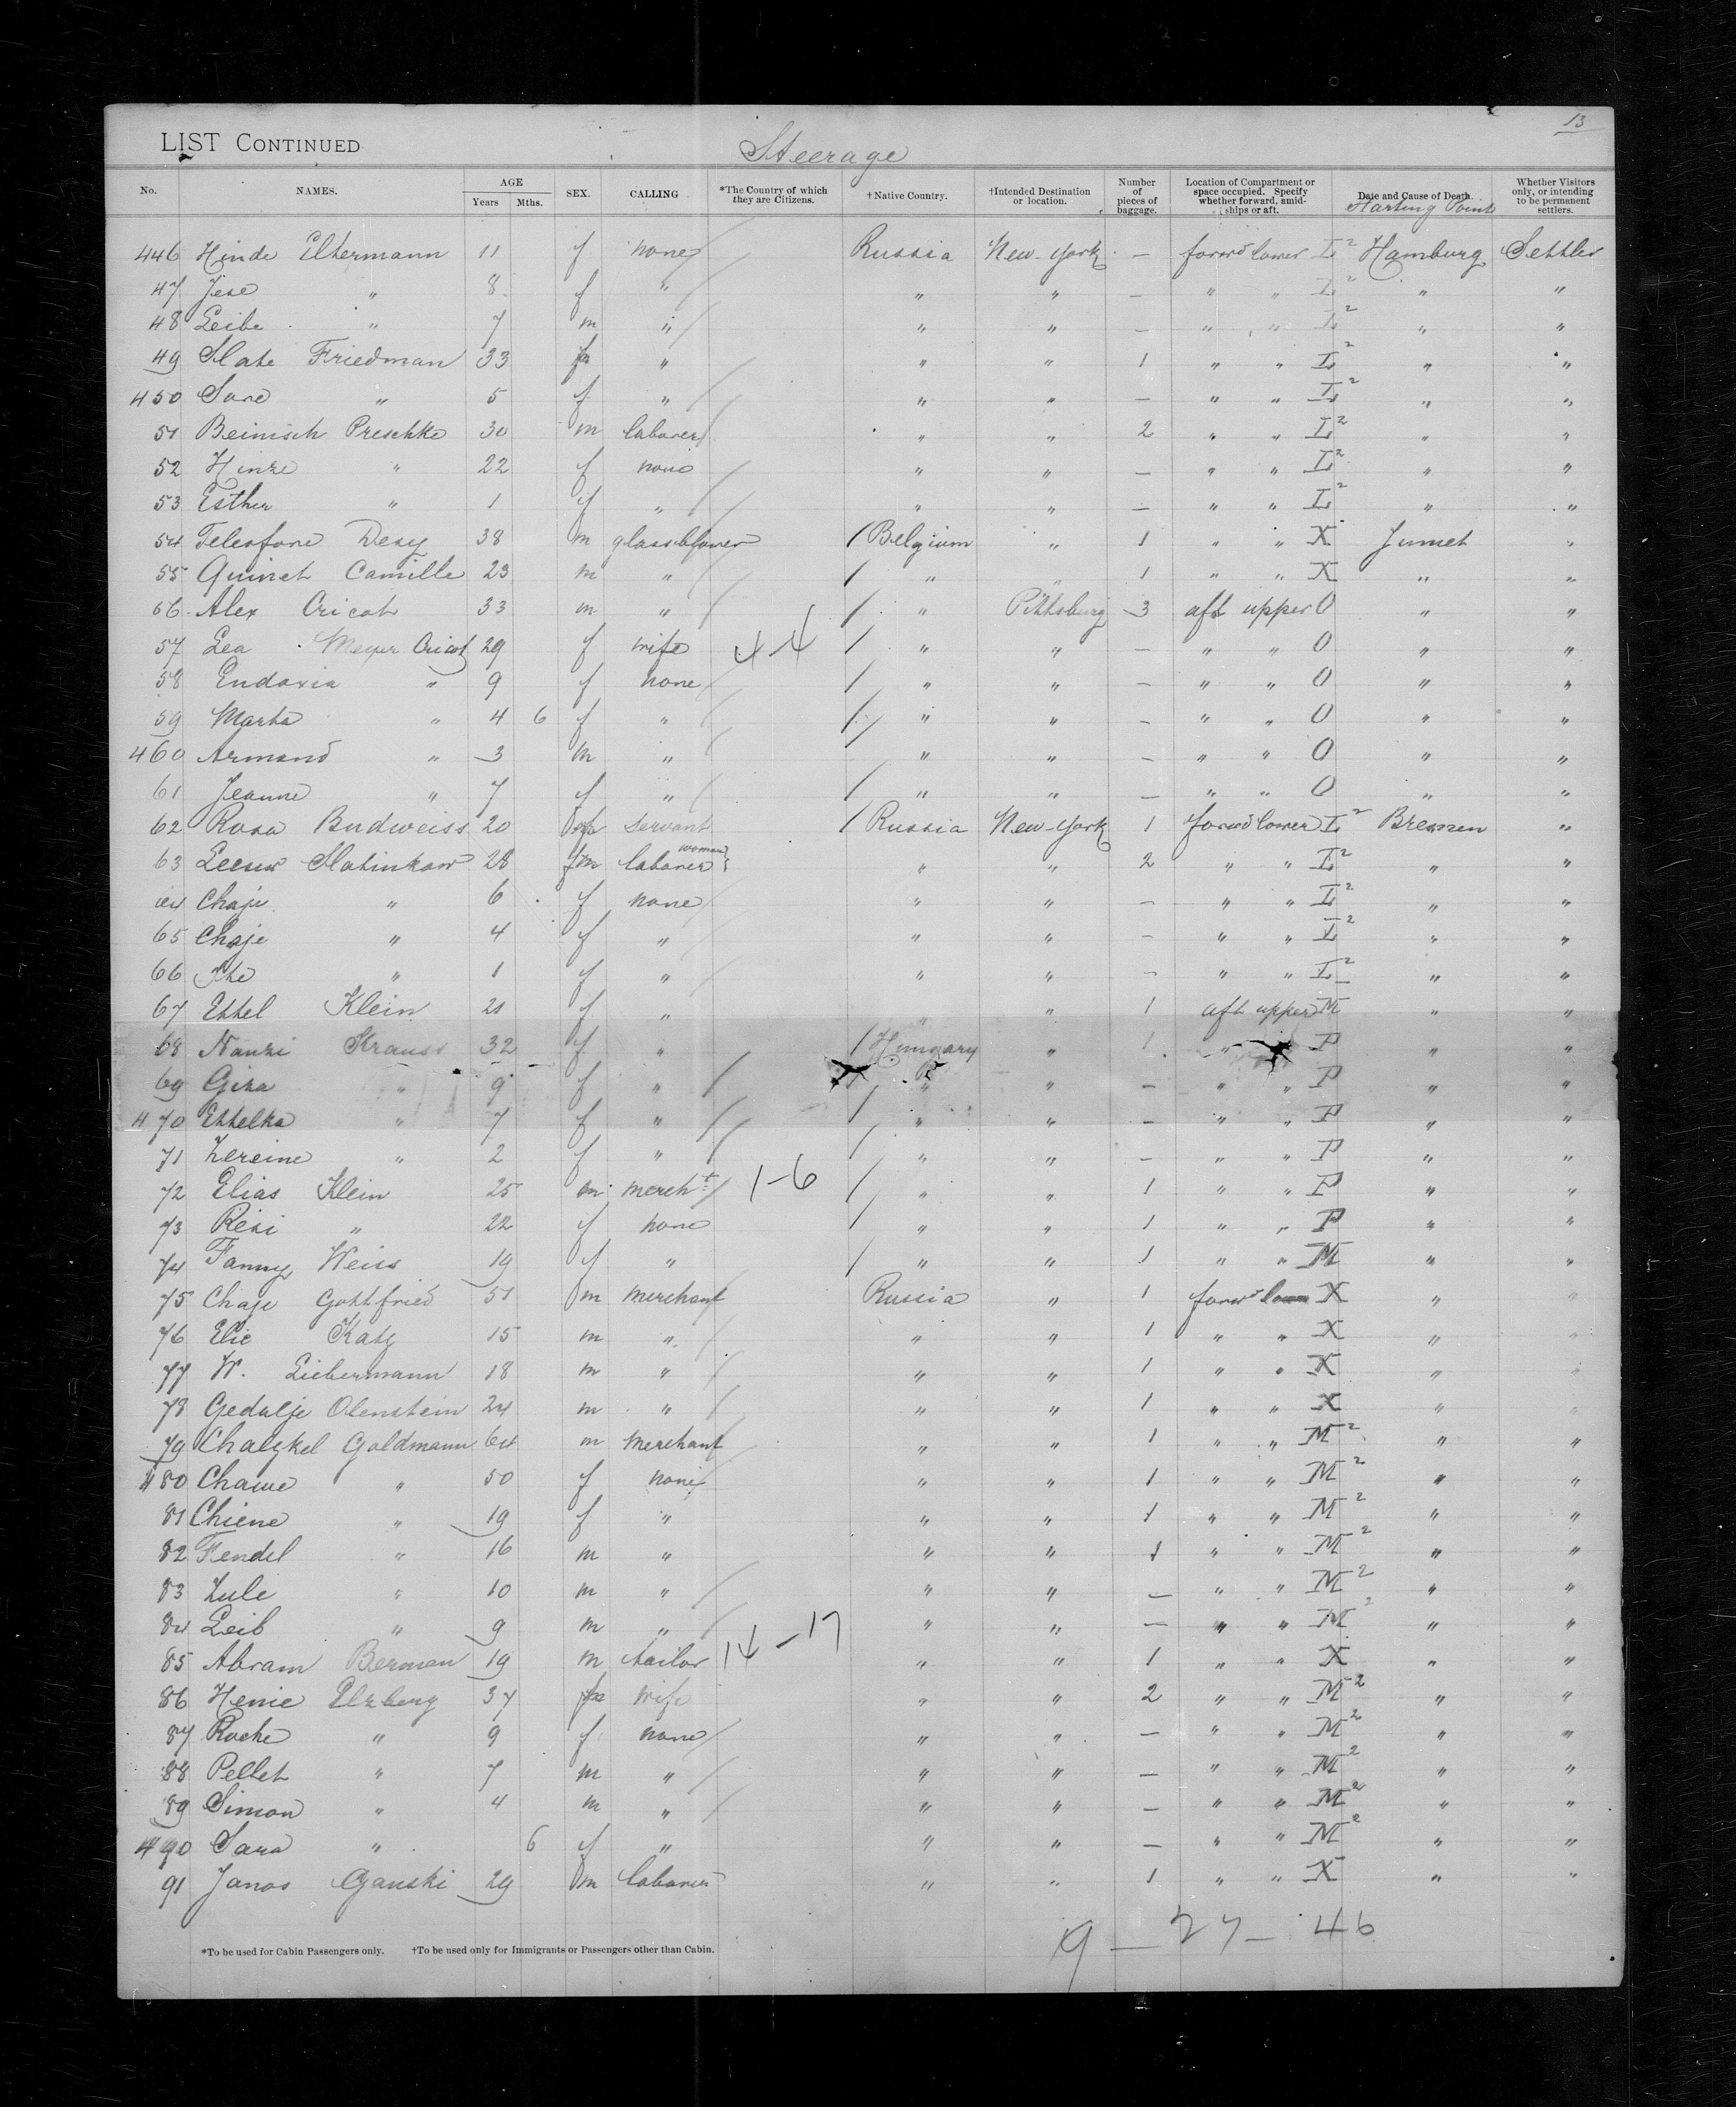 13
LIST CONTINUED
Steerage
No. NAMES. AGE Years Mths. SEX. CALLING *The Country of which they are Citizens. †Native Country. †Intended Destination or location. Number of pieces of baggage. Location of Compartment or space occupied. Specify whether forward, amidships or aft. Date and Cause of Death. Starting Point Whether Visitors only, or intending to be permanent settlers.
446 Hinde Eltermann 11 f none Russia New-York — forwd lower L² Hamburg Settler
47 Jese " 8 f " " " — " " L² " "
48 Leibe " 7 m " " " — " " L² " "
49 Slate Friedman 33 f " " " 1 " " L² " "
450 Sare " 5 f " " " — " " L² " "
51 Beinisch Preschke 30 m laborer " " 2 " " L² " "
52 Hinze " 22 f none " " — " " L² " "
53 Esther " 1 f " " " — " " L² " "
54 Telesfore Desy 38 m glassblower / Belgium " 1 " " X Jumet "
55 Quinet Camille 23 m " / " " 1 " " X " "
56 Alex Cricot 33 m " / " Pittsburg 3 aft upper O " "
57 Lea Meyer Cricot 29 f wife 4-4 / " " — " " O " "
58 Eudoxia " 9 f none / " " — " " O " "
59 Marta " 4 6 f " / " " — " " O " "
460 Armand " 3 m " / " " — " " O " "
61 Jeanne " 7 f " / " " — " " O " "
62 Rosa Budweiss 20 f servant / Russia New-York 1 forwd lower L² Bremen "
63 Leeuw Slatinkow 28 f laborer woman " " 2 " " L² " "
64 Chaje " 6 f none " " — " " L² " "
65 Chaje " 4 f " " " — " " L² " "
66 Ite " 1 f " " " — " " L² " "
67 Ettel Klein 21 f " " " 1 aft upper M " "
68 Nanzi Krauss 32 f " / Hungary " 1 " " P " "
69 Giza " 9 f " / " " — " " P " "
470 Ettelka " 7 f " / " " — " " P " "
71 Zereine " 2 f " / " " — " " P " "
72 Elias Klein 25 m mercht 1-6 / " " 1 " " P " "
73 Resi " 22 f none / " " 1 " " P " "
74 Fanny Weiss 19 f " / " " 1 " " M " "
75 Chaje Gottfried 51 m merchant Russia " 1 forwd lower X " "
76 Elie Katz 15 m " " " 1 " " X " "
77 W. Liebermann 18 m " " " 1 " " X " "
78 Gedalje Olenstein 24 m " " " 1 " " X " "
79 Chaizkel Goldmann 64 m merchant " " 1 " " M² " "
480 Chawe " 50 f none " " 1 " " M² " "
81 Chiene " 19 f " " " 1 " " M² " "
82 Fendel " 16 m " " " 1 " " M² " "
83 Zule " 10 m " " " — " " M² " "
84 Leib " 9 m " " " — " " M² " "
85 Abram Berman 19 m tailor 14-17 " " 1 " " X " "
86 Henie Elzberg 37 f wife " " 2 " " M² " "
87 Roche " 9 f none " " — " " M² " "
88 Pellet " 7 m " " " — " " M² " "
89 Simon " 4 m " " " — " " M² " "
490 Sara " 6 f " " " — " " M² " "
91 Janos Ganski 29 m laborer " " 1 " " X " "
9 — 27 — 46
*To be used for Cabin Passengers only. †To be used only for Immigrants or Passengers other than Cabin.